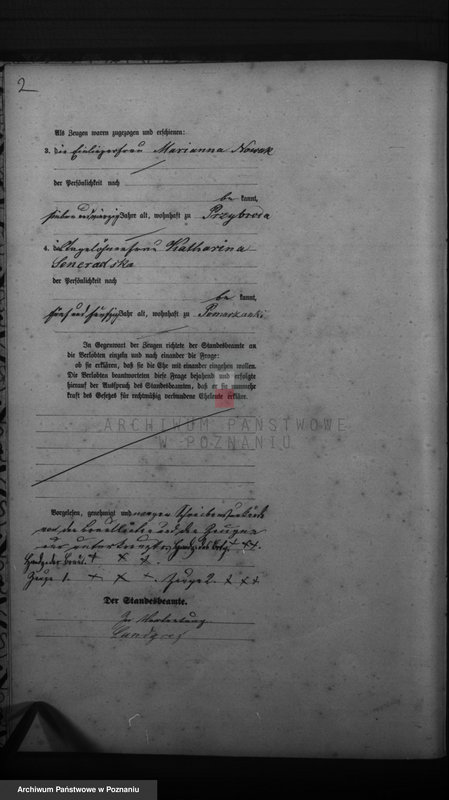 2
Als Zeugen waren zugezogen und erschienen:
3. die Einliegerfrau Marianna Nowak
der Persönlichkeit nach
be kannt,
sieben und vierzig Jahre alt, wohnhaft zu Przybroda
4. die Tagelöhnerfrau Katharina
Sieneradzka
der Persönlichkeit nach
be kannt,
fünf und fünfzig Jahre alt, wohnhaft zu Pomarzanki
In Gegenwart der Zeugen richtete der Standesbeamte an
die Verlobten einzeln und nach einander die Frage:
ob sie erklären, daß sie die Ehe mit einander eingehen wollen.
Die Verlobten beantworteten diese Frage bejahend und erfolgte
hierauf der Ausspruch des Standesbeamten, daß er sie nunmehr
kraft des Gesetzes für rechtmäßig verbundene Eheleute erkläre.
ARCHIWUM PAŃSTWOWE
W POZNANIU
Vorgelesen, genehmigt und wegen Schreibensunkunde
von den Brautleuten und den Zeugen
unterkreuzt. +++
Braut. + + +
Zeuge 1. + + +. Zeuge 2. + + +
Der Standesbeamte.
In Vertretung
Landgraf
Archiwum Państwowe w Poznaniu